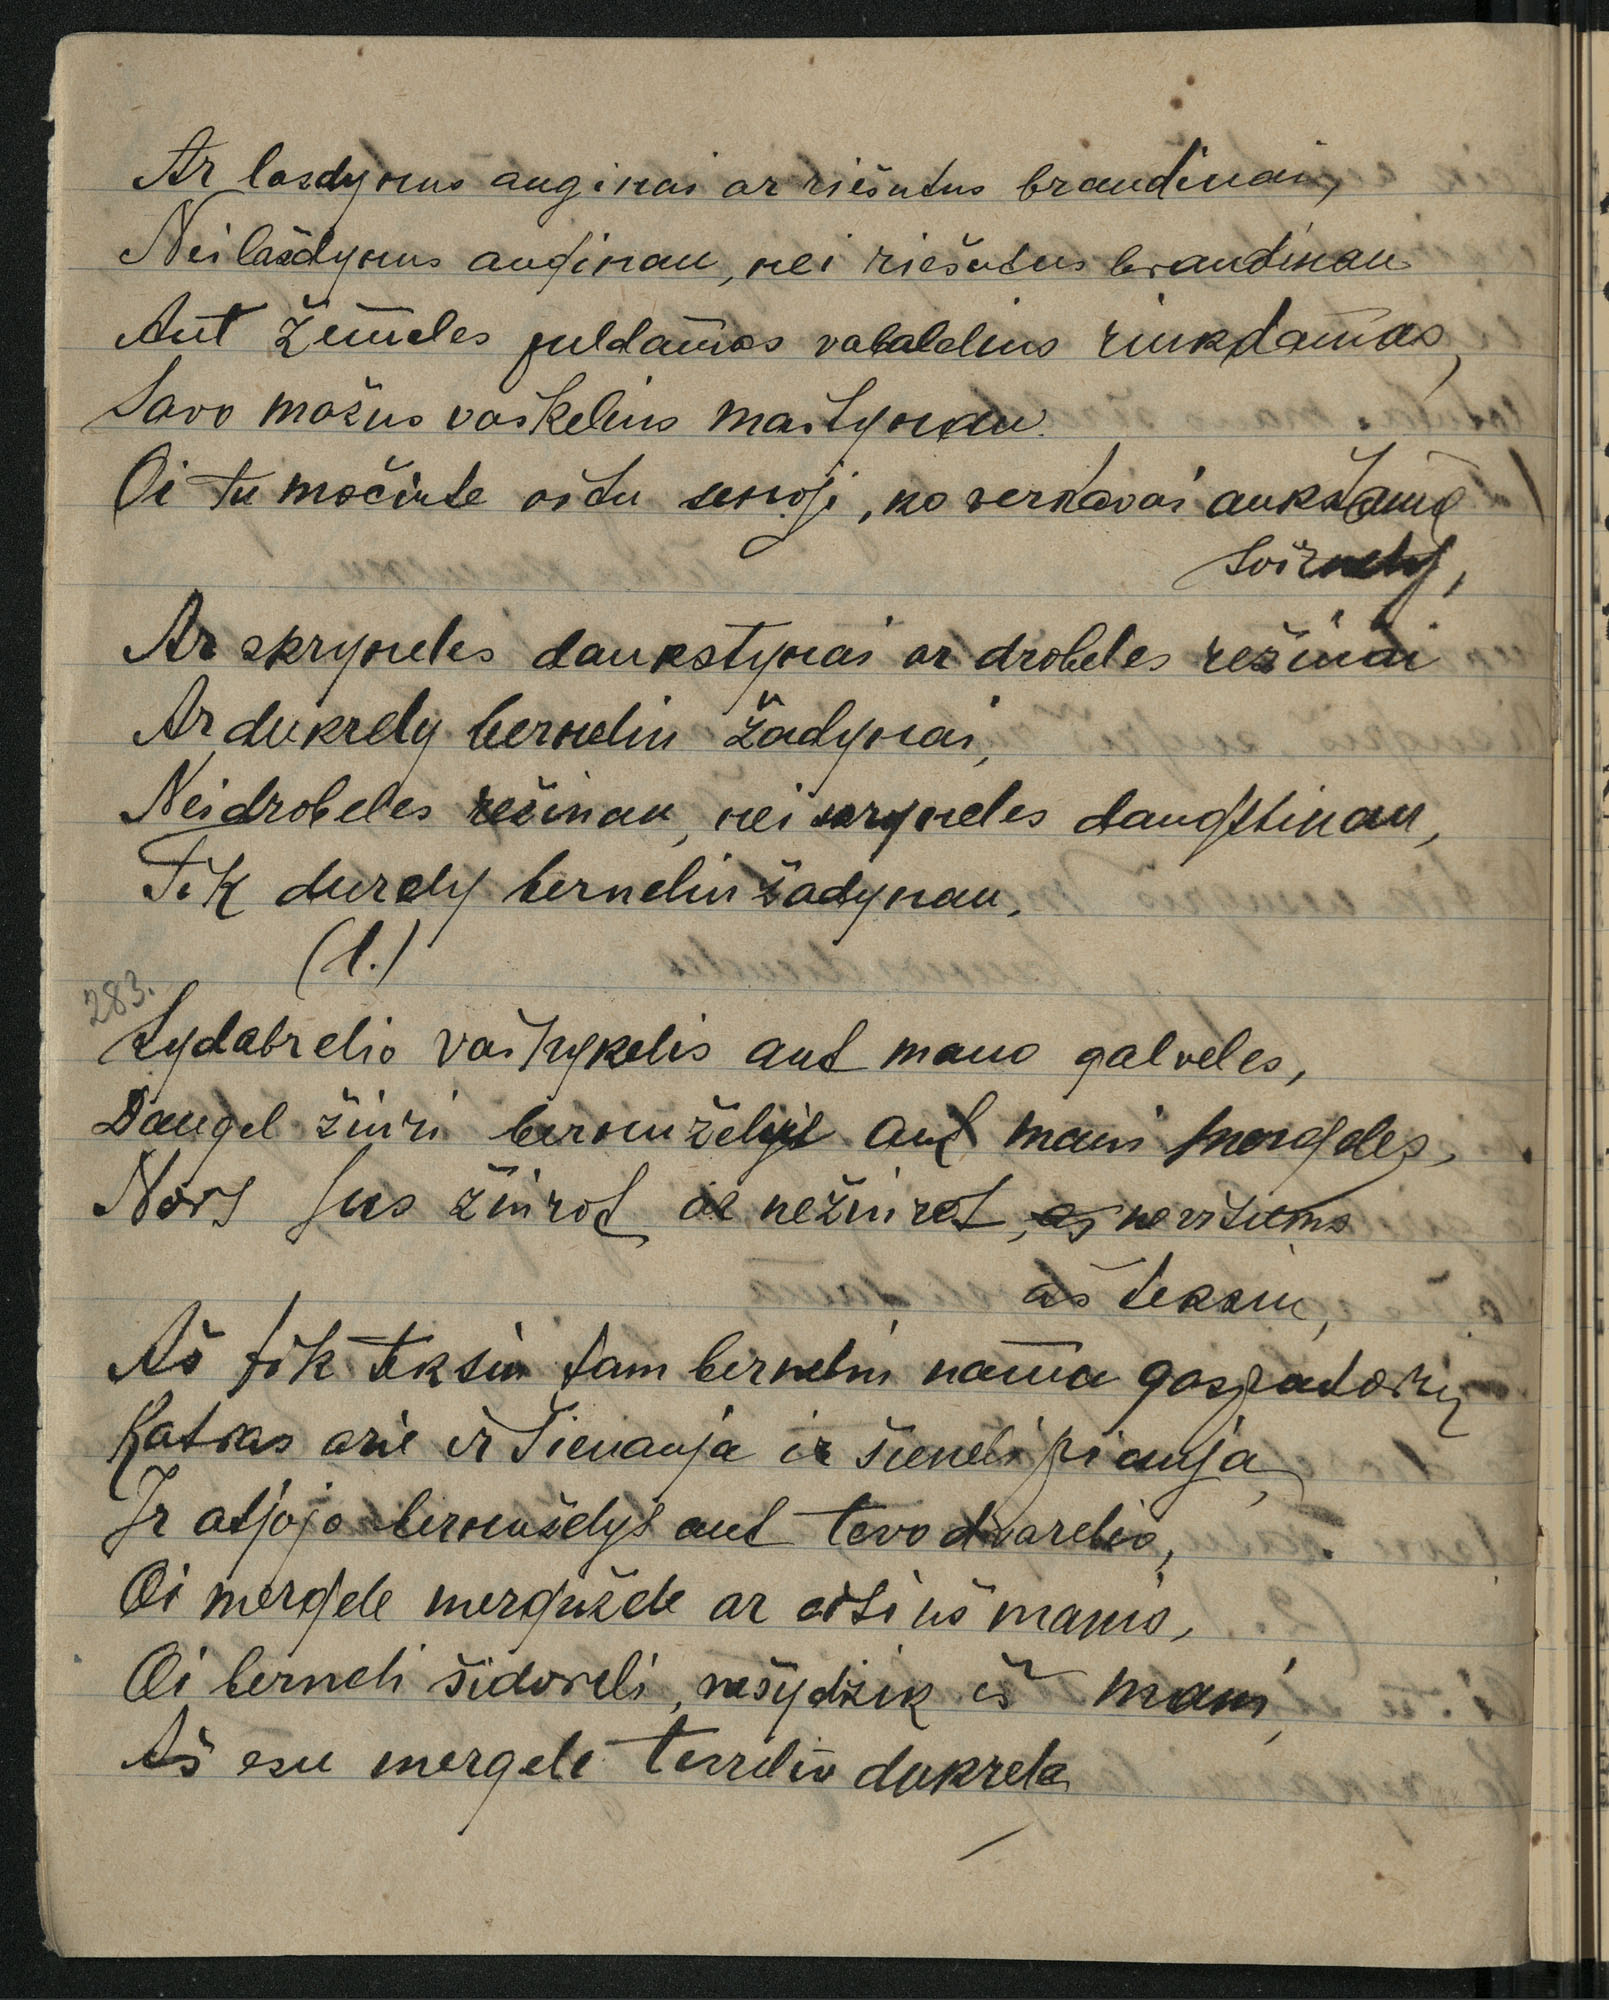 Ar lasdynus auginai ar riešutus brandinai,
Nei lašdynus auginau, nei riešutus brandinau
Ant žemeles puldamas vabalelius rinkdamas,
Savo mažus vaikelius maitynau.
Oi tu močiute oštu senoji, ko verkavai aukštame
svirnely,
Ar skryneles daukstynai ar drobeles režinai
Ar dukrely bernelin žadynai,
Nei drobeles režinau, nei skryneles daugstinau,
Tik durely bernelin žadynau.
(1.)
283.
Sydabrelio vainykelis ant mano galveles,
Daugel žiuri bernuželys ant mani mergeles,
Nors jus žiurot ar nežiurot, aš ne visiems
aš teksiu,
Aš tik teksiu tam berneliui nama gospadoriu
Katras arie ir šienauja ir šieneli piauja,
Ir atjojo bernuželys ant tevo dvarelio,
Oi mergele mergužele ar eisi už manis,
Oi berneli šidoreli, nešydžik iš mani,
Aš esu mergele tevelio dukrele